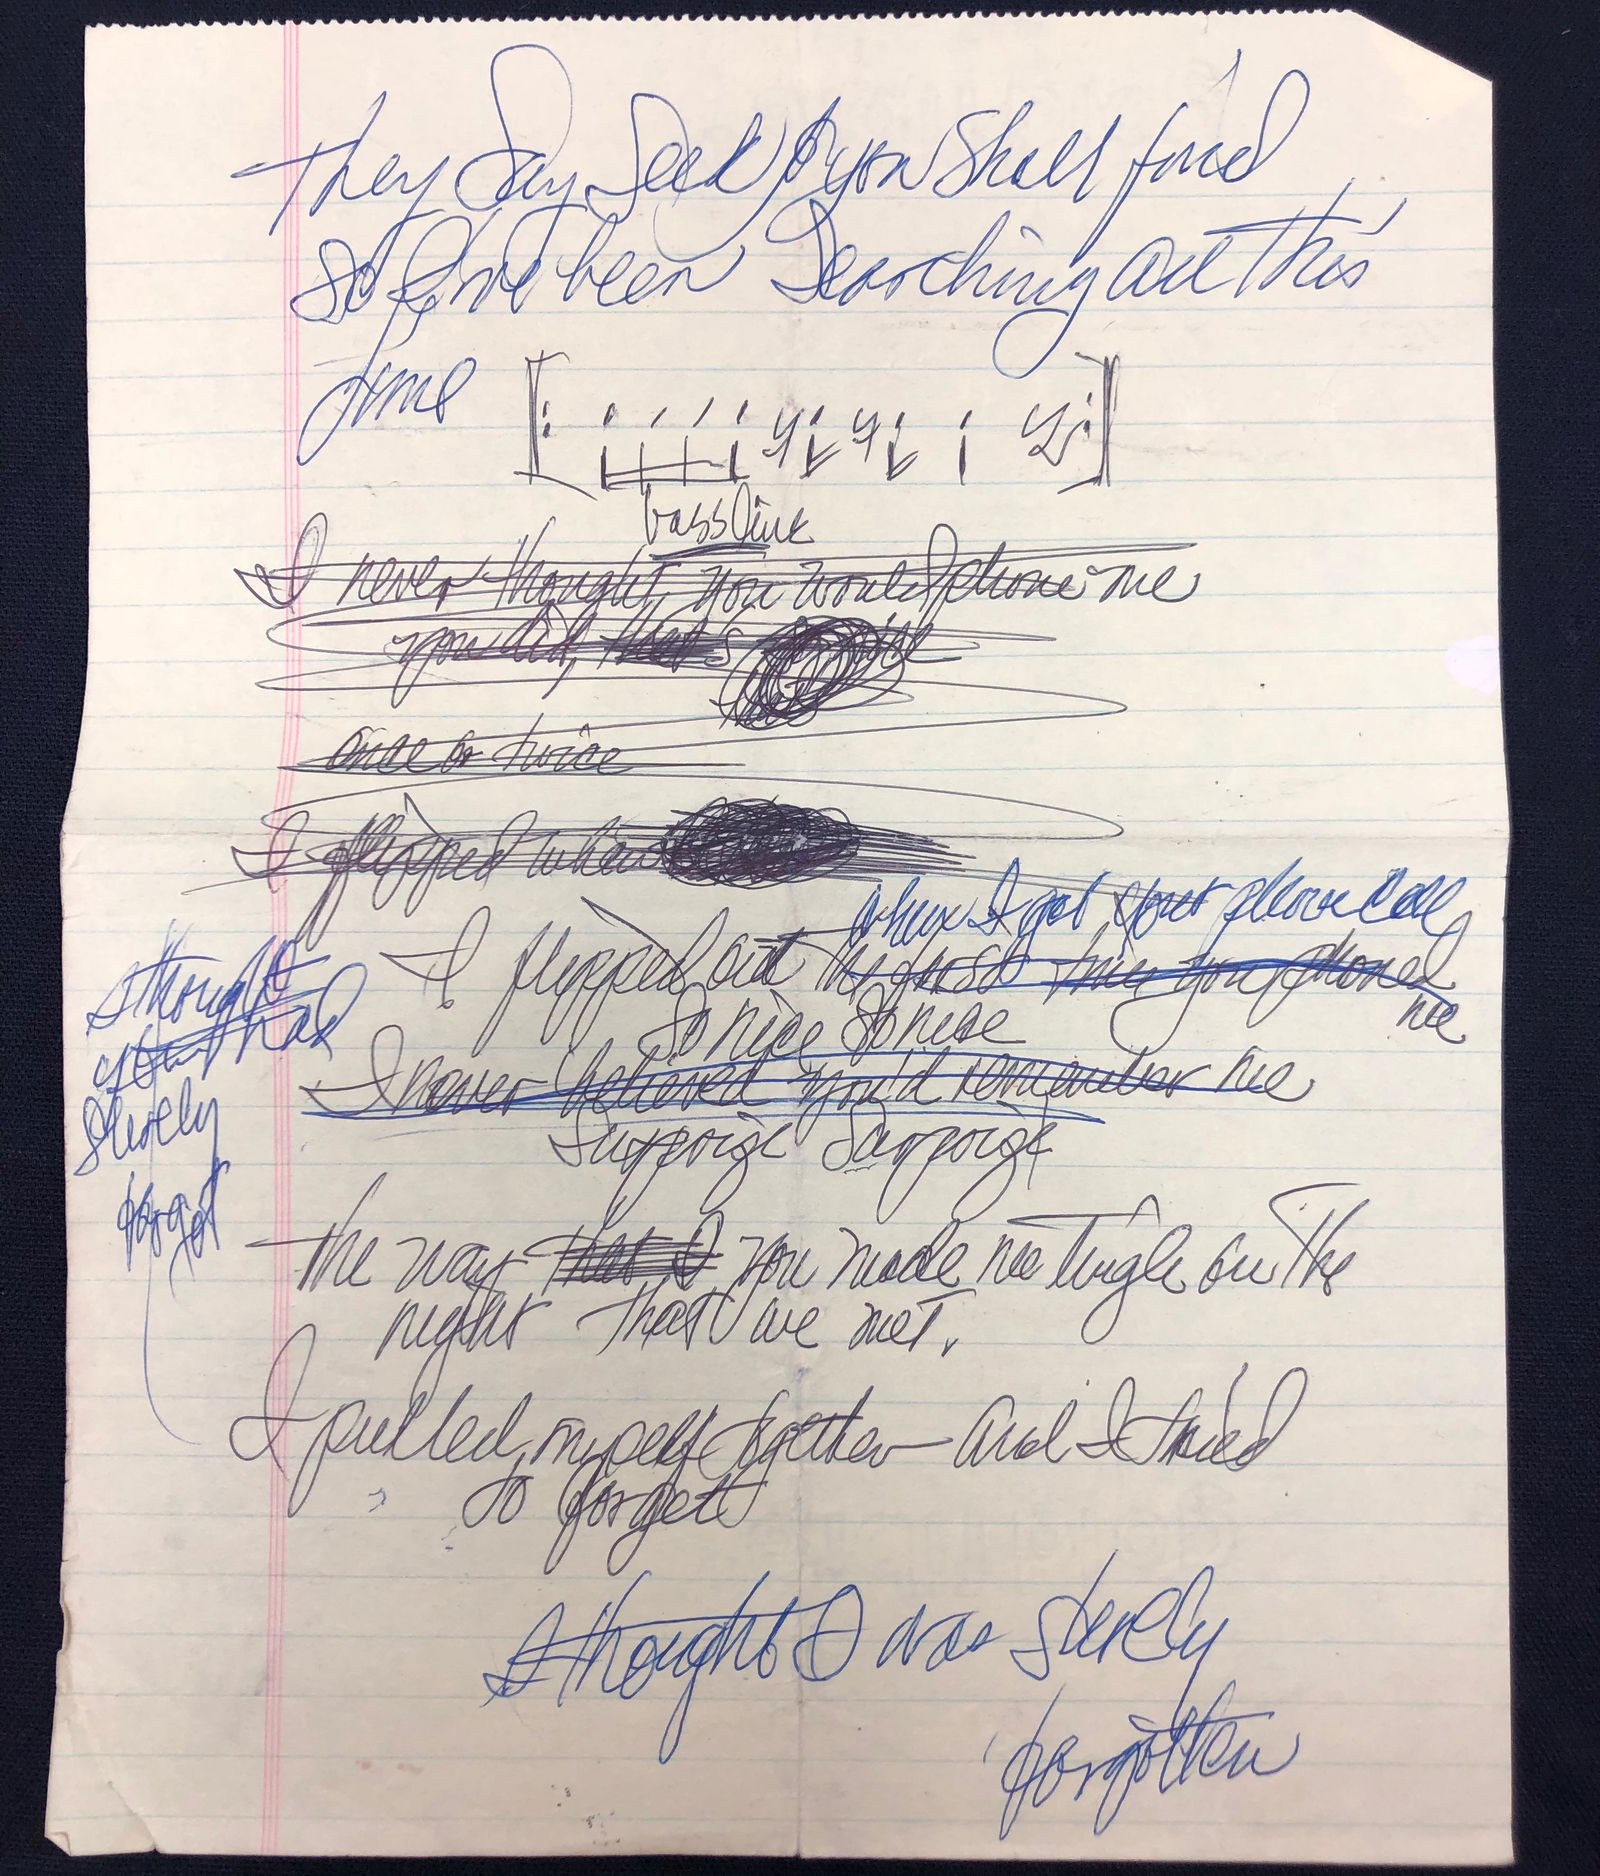 They Say Seek & you Shall find
So I've been Searching all This
time
bassline
I never thought, you would phone me
you did, that's
once or twice
I flipped when
when I got your phone call
I flipped out the first time you phoned
me
So nice So nice
I never believed you'd remember me
Surprize Surprize
I thought
you had
surely
forgot
The way that I you made me Tingle on The
night that we met.
I pulled myself together and I tried
to forget
I thought I was surely
forgotten